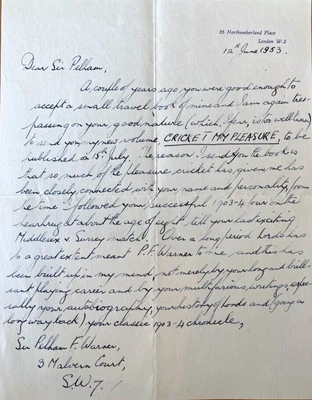 35 Northumberland Place
London W.2
12th June 1953.
Dear Sir Pelham,
A couple of years ago, you were good enough to
accept a small travel book of mine and I am again tres-
passing on your good nature (which, I fear, is too well known)
to send you my new volume, CRICKET MY PLEASURE, to be
published on 15th July. The reason I send you the book is
that so much of the pleasure cricket has given me has
been closely connected with your name and personality, from
the time I followed your successful 1903-4 tour on the
hearthrug at about the age of eight till your last exciting
Middlesex v. Surrey match. Over a long period Lords has
to a great extent meant P.F. Warner to me and this has
been built up in my mind, not merely by your long and brill-
iant playing career and by your multifarious writings, espe-
cially your autobiography, your history of Lords and (going a
long way back) your classic 1903-4 chronicle,
Sir Pelham F. Warner,
3 Malvern Court,
S.W.7.